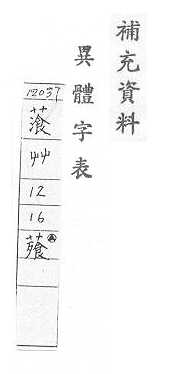 補充資料
異體字表
12037
艸
12
16